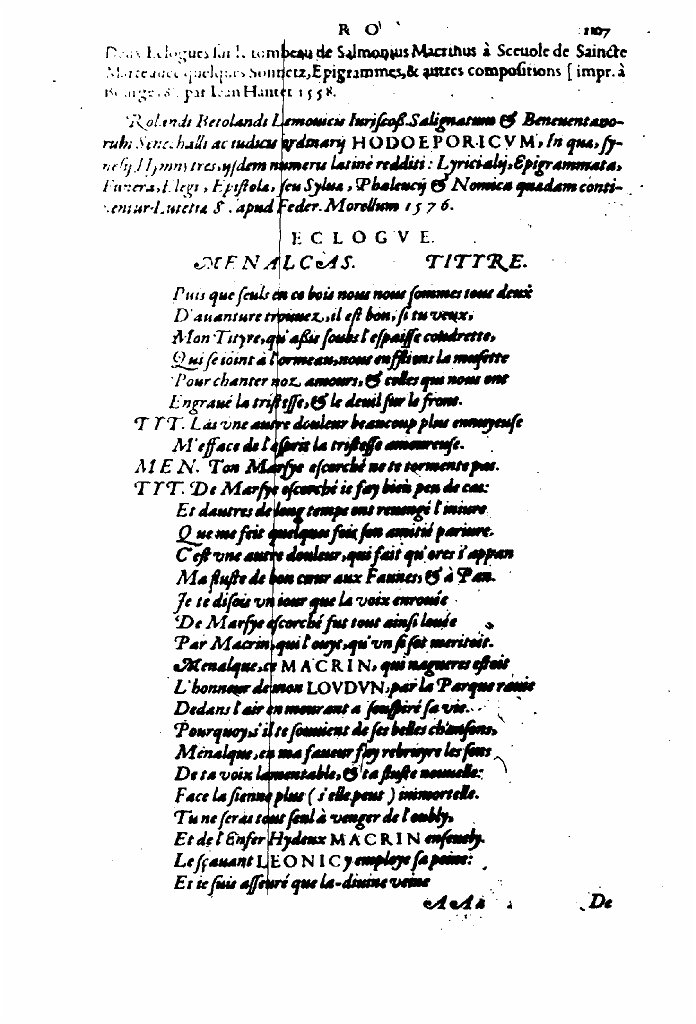 R O
1107
Deux Eclogues sur le tombeau de Salmonius Macrinus à Sceuole de Saincte
Marte auec quelques Sonnetz, Epigrammes, & autres compositions [ impr. à
par Iean 1558.
Rolandi Betolandi Lemouicis Iuriscoss. Salignatum &
ac iudicis ordinarij HODOEPORICVM, In qua, sy-
Hymni tres, ijsdem numeris latinè redditi: Lyrici alij, Epigrammata,
Funera, Elegi, Epistola, seu Sylua, Phaleucij & Nomica quædam conti-
nentur. Lutetiæ 8. apud Feder. Morellum 1576.
ECLOGVE.
MENALCAS. TITTRE.
Puis que seuls en ce bois nous nous sommes tous deux
D'auanture trouuez, il est bon, si tu veux,
Mon Tityre, qu'aßis soubs l'espaisse coudrette,
Qui se ioint à l'ormeau, nous enflions la musette
Pour chanter noz amours, & celles qui nous ont
Engraué la tristesse, & le deuil sur le front.
TIT. Las vne autre douleur beaucoup plus ennuyeuse
M'efface de l'esprit la tristesse amoureuse.
MEN. Ton Marsye escorché ne te tormente pas.
TIT. De Marsye escorché ie fay bien peu de cas:
Et dautres de long temps ont reuengé l'iniure
Que me feit quelques fois son amitié pariure.
C'est vne autre douleur, qui fait qu'ores i'appan
Ma fluste de bon cœur aux Faunes, & à Pan.
Ie te disois vn iour que la voix enrouée
De Marsye escorché fut tout ainsi louée
Par Macrin, qui l'ouye, qu'vn si sot meritoit.
Menalque, ce MACRIN, qui nagueres estoit
L'honneur de mon LOVDVN, par la Parque rauie
Dedans l'air en mourant a souspiré sa vie.
Pourquoy, s'il te souuient de ses belles chansons,
Ménalque, en ma faueur fay rebruyre les sons
De ta voix lamentable, & ta fluste nouuelle:
Face la sienne plus ( s'elle peut ) immortelle.
Tu ne seras tout seul à venger de l'oubly,
Et de l'Enfer Hydeux MACRIN enseuely.
Le sçauant LEONIC y employe sa peine:
Et ie suis asseuré que la diuine veine
AAa
De